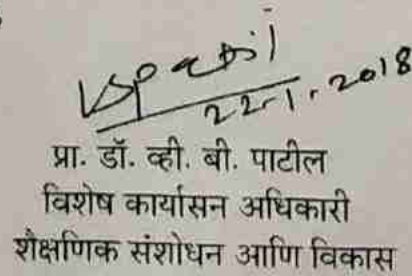 22-1-2018
प्रा. डॉ. व्ही. बी. पाटील
विशेष कार्यासन अधिकारी
शैक्षणिक संशोधन आणि विकास